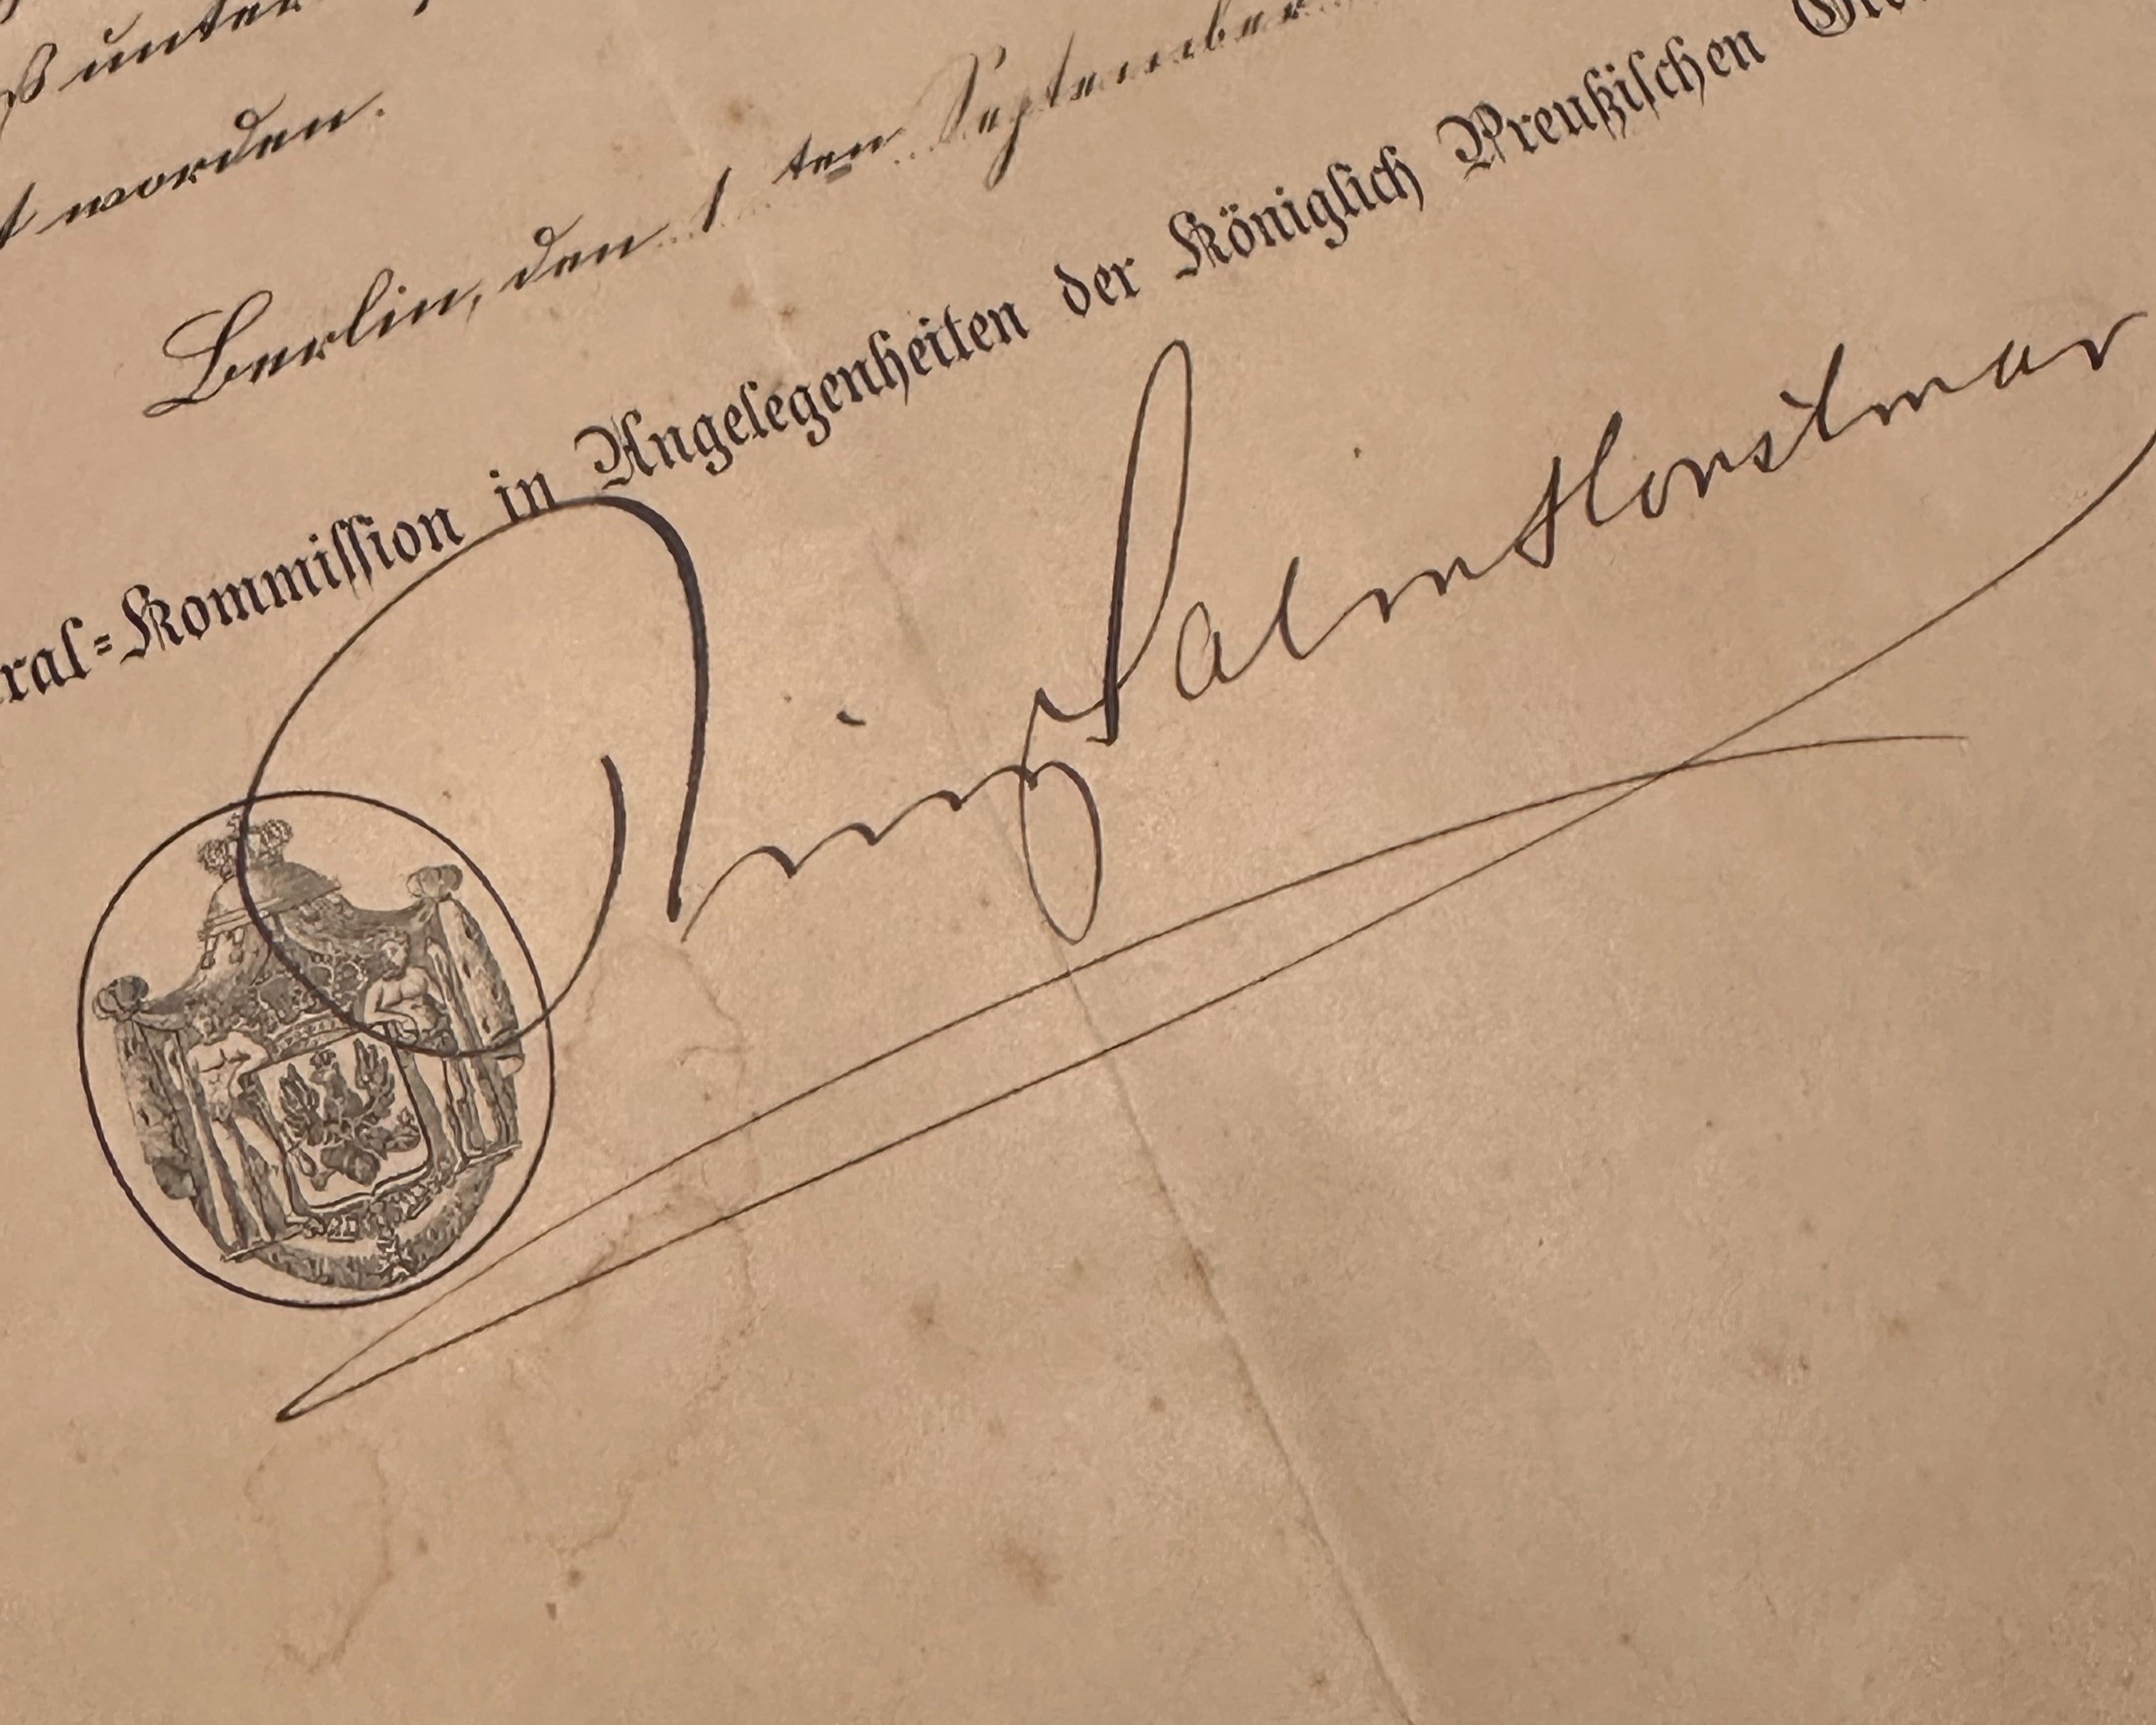 ß unter
t worden.
Berlin, den 1 ten September
ral-Kommission in Angelegenheiten der Königlich Preußischen Or
Prinz Salm Horstmar